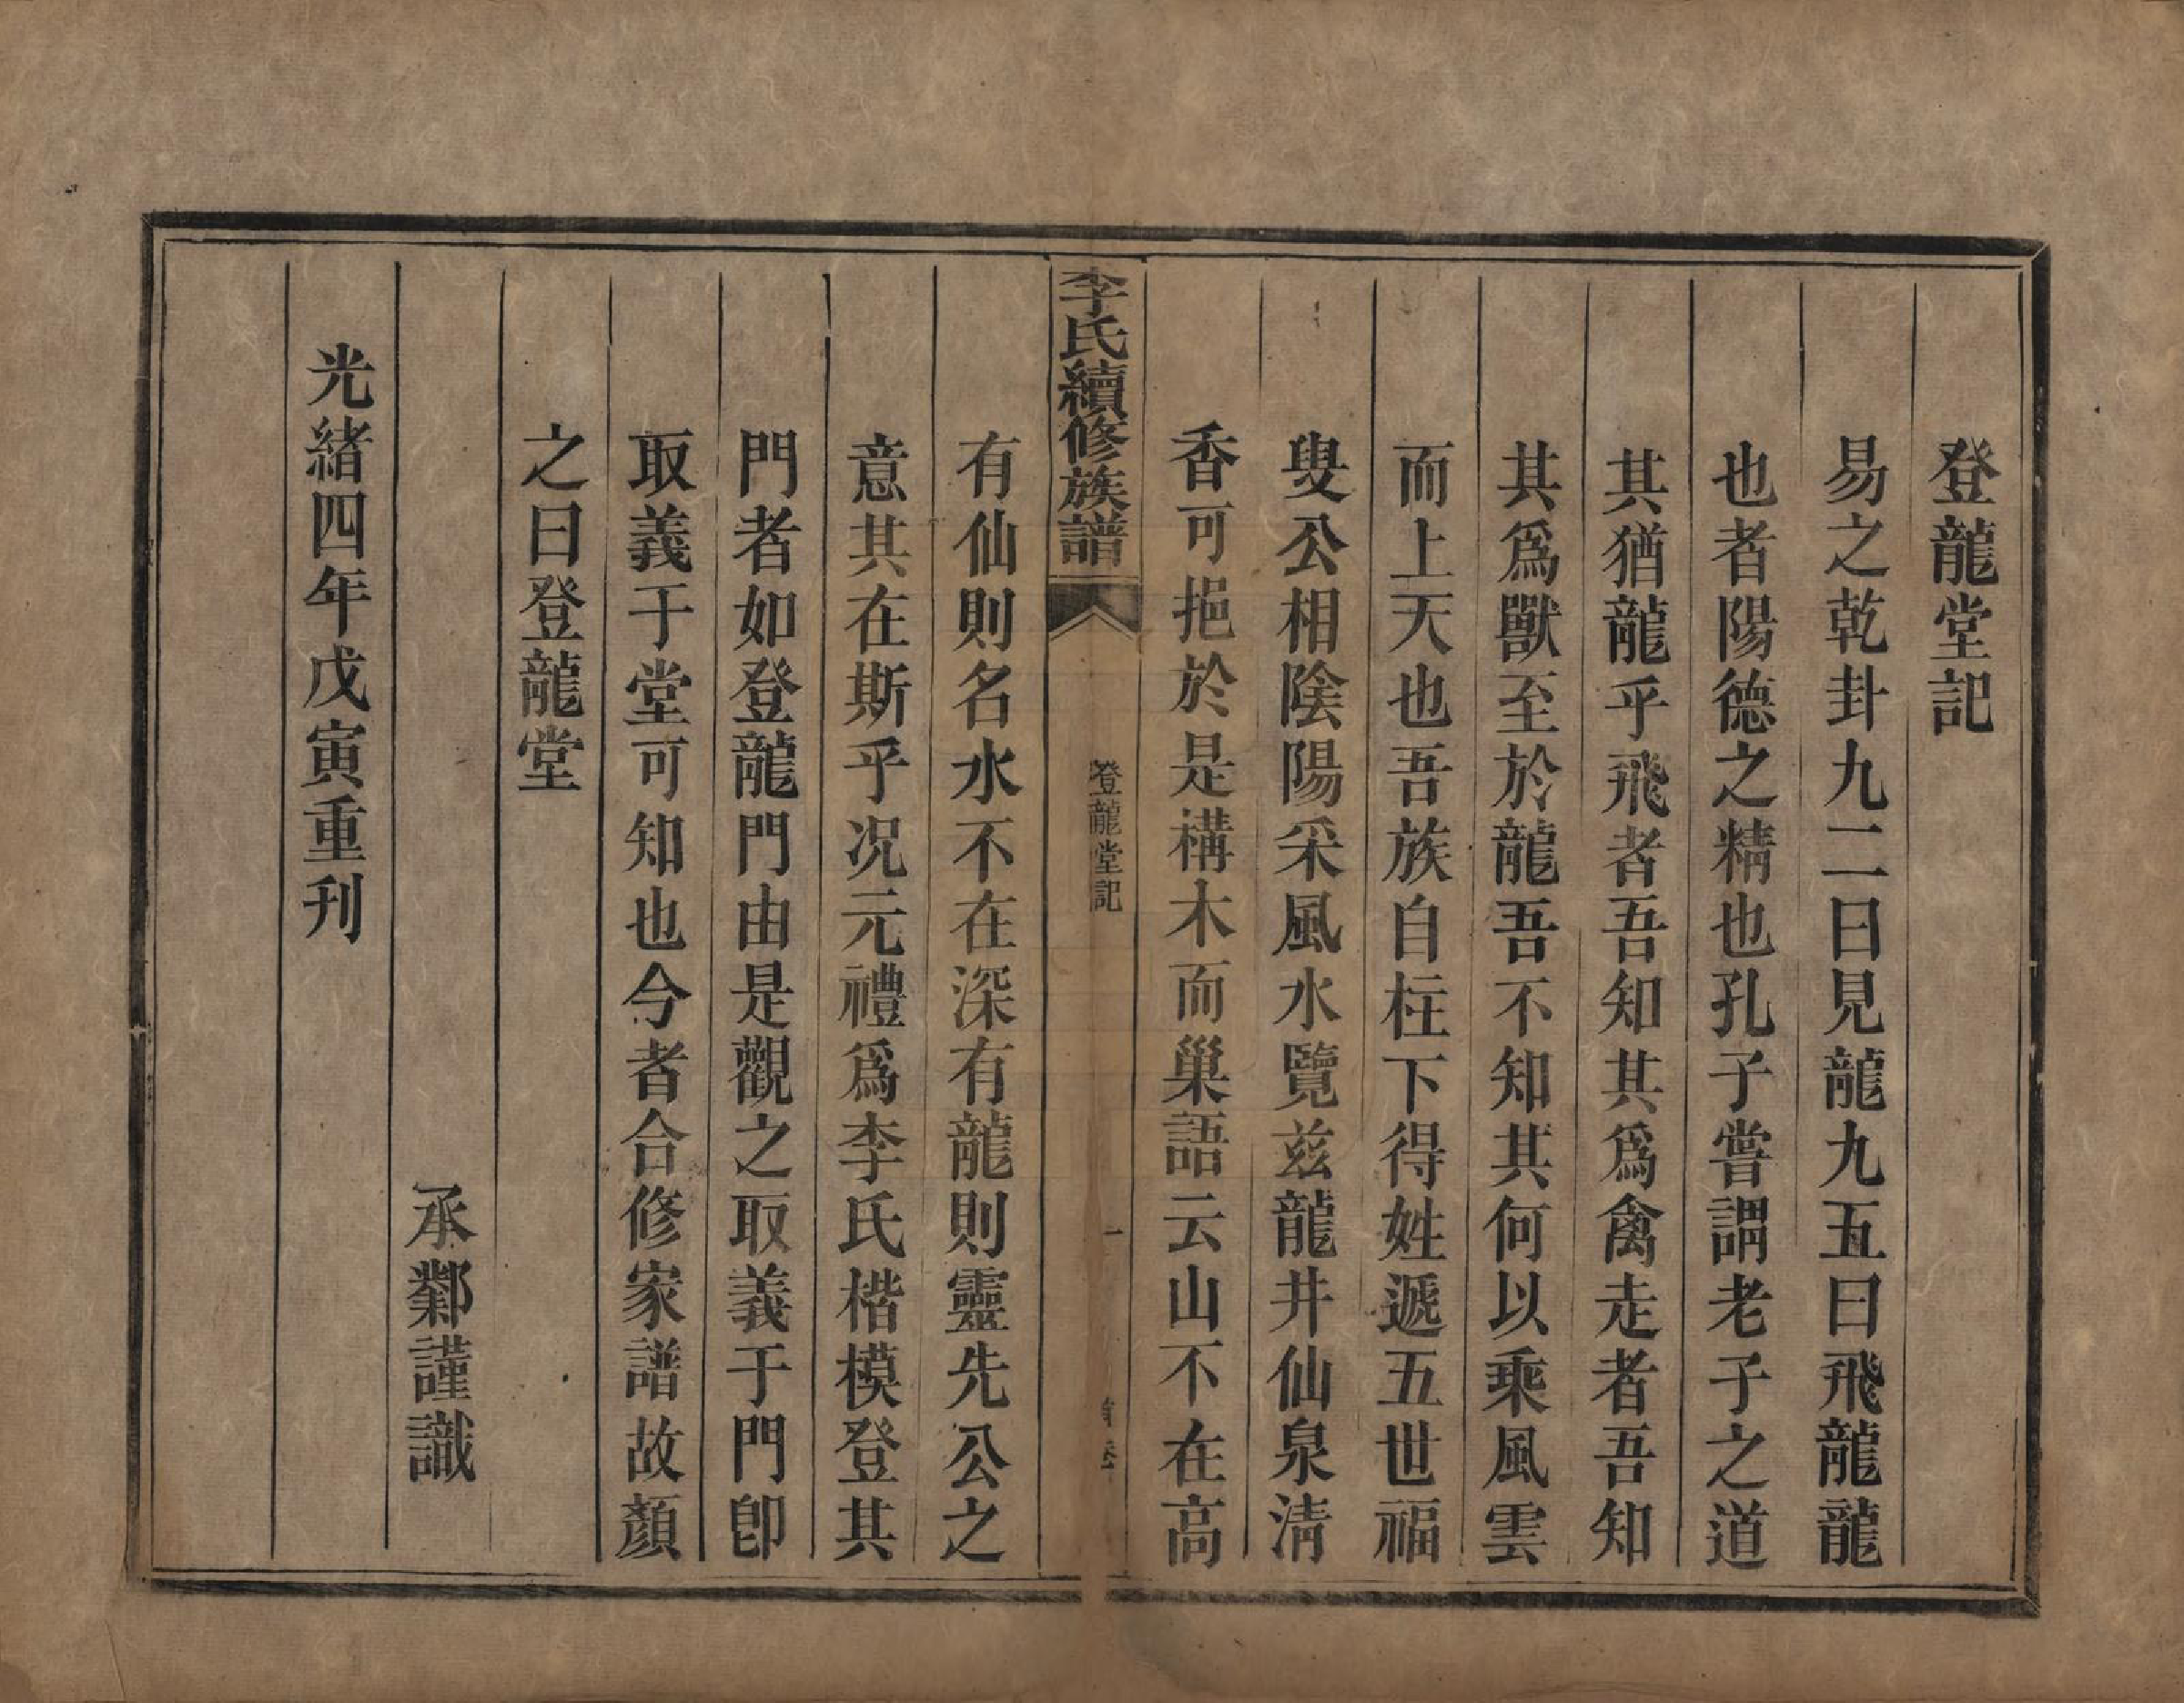 登龍堂記
易之乾卦九二曰見龍九五曰飛龍龍
也者陽德之精也孔子嘗謂老子之道
其猶龍乎飛者吾知其爲禽走者吾知
其爲獸至於龍吾不知其何以乘風雲
而上天也吾族自柱下得姓遞五世福
叟公相陰陽采風水覽茲龍井仙泉淸
香可挹於是構木而巢語云山不在高
李氏續修族譜
登龍堂記
一
首卷
有仙則名水不在深有龍則靈先公之
意其在斯乎況元禮爲李氏楷模登其
門者如登龍門由是觀之取義于門卽
取義于堂可知也今者合修家譜故顏
之曰登龍堂
承鄴謹識
光緒四年戊寅重刊